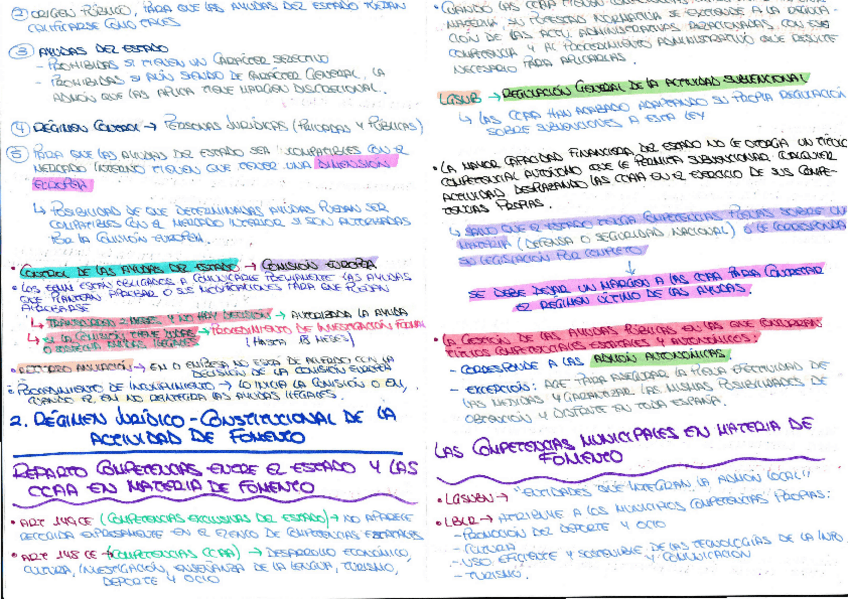 ② ORIGEN PÚBLICO, PARA QUE LAS AYUDAS DEL ESTADO PUEDAN
CALIFICARSE COMO TALES
③ AYUDAS DEL ESTADO
- PROHIBIDAS SI TIENEN UN CARÁCTER SELECTIVO
- PROHIBIDAS SI AÚN SIENDO DE CARÁCTER GENERAL, LA
ADMÓN QUE LAS APLICA TIENE MARGEN DISCRECIONAL.
④ RÉGIMEN CONTROL → PERSONAS JURÍDICAS (PRIVADAS Y PÚBLICAS)
⑤ PARA QUE LAS AYUDAS DEL ESTADO SEAN COMPATIBLES CON EL
MERCADO INTERNO TIENEN QUE TENER UNA DIMENSIÓN
EUROPEA
↳ POSIBILIDAD DE QUE DETERMINADAS AYUDAS PUEDAN SER
COMPATIBLES CON EL MERCADO INTERIOR SI SON AUTORIZADAS
POR LA COMISIÓN EUROPEA.
• CONTROL DE LAS AYUDAS DEL ESTADO → COMISIÓN EUROPEA
• LOS EEMM ESTÁN OBLIGADOS A COMUNICARLE PREVIAMENTE LAS AYUDAS
QUE PLANTEAN APROBAR O SUS MODIFICACIONES PARA QUE PUEDAN
APROBARSE
↳ TRANSCURRIDO 2 MESES Y NO HAY DECISIÓN → AUTORIZADA LA AYUDA
↳ SI LA COMISIÓN TIENE DUDAS → PROCEDIMIENTO DE INVESTIGACIÓN FORMAL
O SOSPECHA AYUDAS ILEGALES (HASTA 18 MESES)
• RECURSO ANULACIÓN → EM O EMPRESA NO ESTÁ DE ACUERDO CON LA
DECISIÓN DE LA COMISIÓN EUROPEA
• PROCEDIMIENTO DE INCUMPLIMIENTO → LO INICIA LA COMISIÓN O EM,
CUANDO EL EM NO REINTEGRA LAS AYUDAS ILEGALES.
2. RÉGIMEN JURÍDICO - CONSTITUCIONAL DE LA
ACTIVIDAD DE FOMENTO
REPARTO COMPETENCIAS ENTRE EL ESTADO Y LAS
CCAA EN MATERIA DE FOMENTO
• ART 149 CE (COMPETENCIAS EXCLUSIVAS DEL ESTADO) → NO APARECE
RECOGIDA EXPRESAMENTE EN EL ELENCO DE COMPETENCIAS ESTATALES
• ART 148 CE → (COMPETENCIAS CCAA) → DESARROLLO ECONÓMICO,
CULTURA, INVESTIGACIÓN, ENSEÑANZA DE LA LENGUA, TURISMO,
DEPORTE Y OCIO
• CUANDO LAS CCAA TIENEN COMPETENCIAS
MATERIA, SU POTESTAD NORMATIVA SE EXTIENDE A LA REGULA-
CIÓN DE LAS ACTU. ADMINISTRATIVAS RELACIONADAS CON ESA
COMPETENCIA Y AL PROCEDIMIENTO ADMINISTRATIVO QUE RESULTE
NECESARIO PARA APLICARLAS.
LGSUB → REGULACIÓN GENERAL DE LA ACTIVIDAD SUBVENCIONAL
↳ LAS CCAA HAN ACABADO ADAPTANDO SU PROPIA REGULACIÓN
SOBRE SUBVENCIONES A ESTA LEY
• LA MAYOR CAPACIDAD FINANCIERA DEL ESTADO NO LE OTORGA UN TÍTULO
COMPETENCIAL AUTÓNOMO QUE LE PERMITA SUBVENCIONAR CUALQUIER
ACTIVIDAD DESPLAZANDO LAS CCAA EN EL EJERCICIO DE SUS COMPE-
TENCIAS PROPIAS.
↳ SALVO QUE EL ESTADO TENGA COMPETENCIAS PLENAS SOBRE UNA
MATERIA (DEFENSA O SEGURIDAD NACIONAL) O LE CORRESPONDA
SU LEGISLACIÓN POR COMPLETO
↓
SE DEBE DEJAR UN MARGEN A LAS CCAA PARA COMPLETAR
EL RÉGIMEN ÚLTIMO DE LAS AYUDAS.
• LA GESTIÓN DE LAS AYUDAS PÚBLICAS EN LAS QUE CONCURRAN
TÍTULOS COMPETENCIALES ESTATALES Y AUTONÓMICOS:
- CORRESPONDE A LAS ADMÓN AUTONÓMICAS.
- EXCEPCIÓN: AGE PARA ASEGURAR LA PLENA EFECTIVIDAD DE
LAS MEDIDAS Y GARANTIZAR LAS MISMAS POSIBILIDADES DE
OBTENCIÓN Y DISFRUTE EN TODA ESPAÑA.
LAS COMPETENCIAS MUNICIPALES EN MATERIA DE
FOMENTO
• LGSUBV → "ENTIDADES QUE INTEGRAN LA ADMÓN LOCAL"
• LBRL → ATRIBUYE A LOS MUNICIPIOS COMPETENCIAS PROPIAS:
- PROMOCIÓN DEL DEPORTE Y OCIO
- CULTURA
- USO EFICIENTE Y SOSTENIBLE DE LAS TECNOLOGÍAS DE LA INFO.
Y COMUNICACIÓN
- TURISMO.